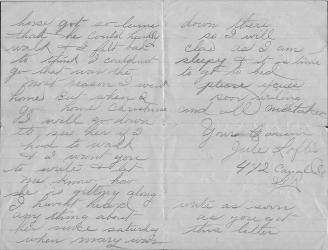 horse got so lame
that he could hardly
walk & I felt bad
to think I couldnt
go that was the
most reason I went
home But when I
go home Christmas
I will go down
to see her if I
had to walk
& I want you
to write & let
me know how
she is getting along
I havnt heard
any thing about
her since saturday
when mary was
down there
so I will
close as I am
sleepy & it is time
to go to bed
please excuse
poor writing
and all mistakes
Yours Cousin
Jule
472 Canal St
write as soon
as you get
this letter